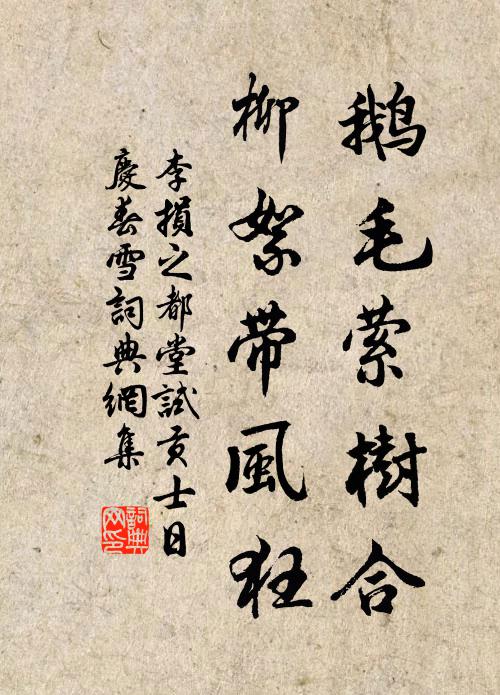 鵝毛萦樹合
柳絮帶風狂
李損之都堂試貢士日
慶春雪詞典網集
詞典网印